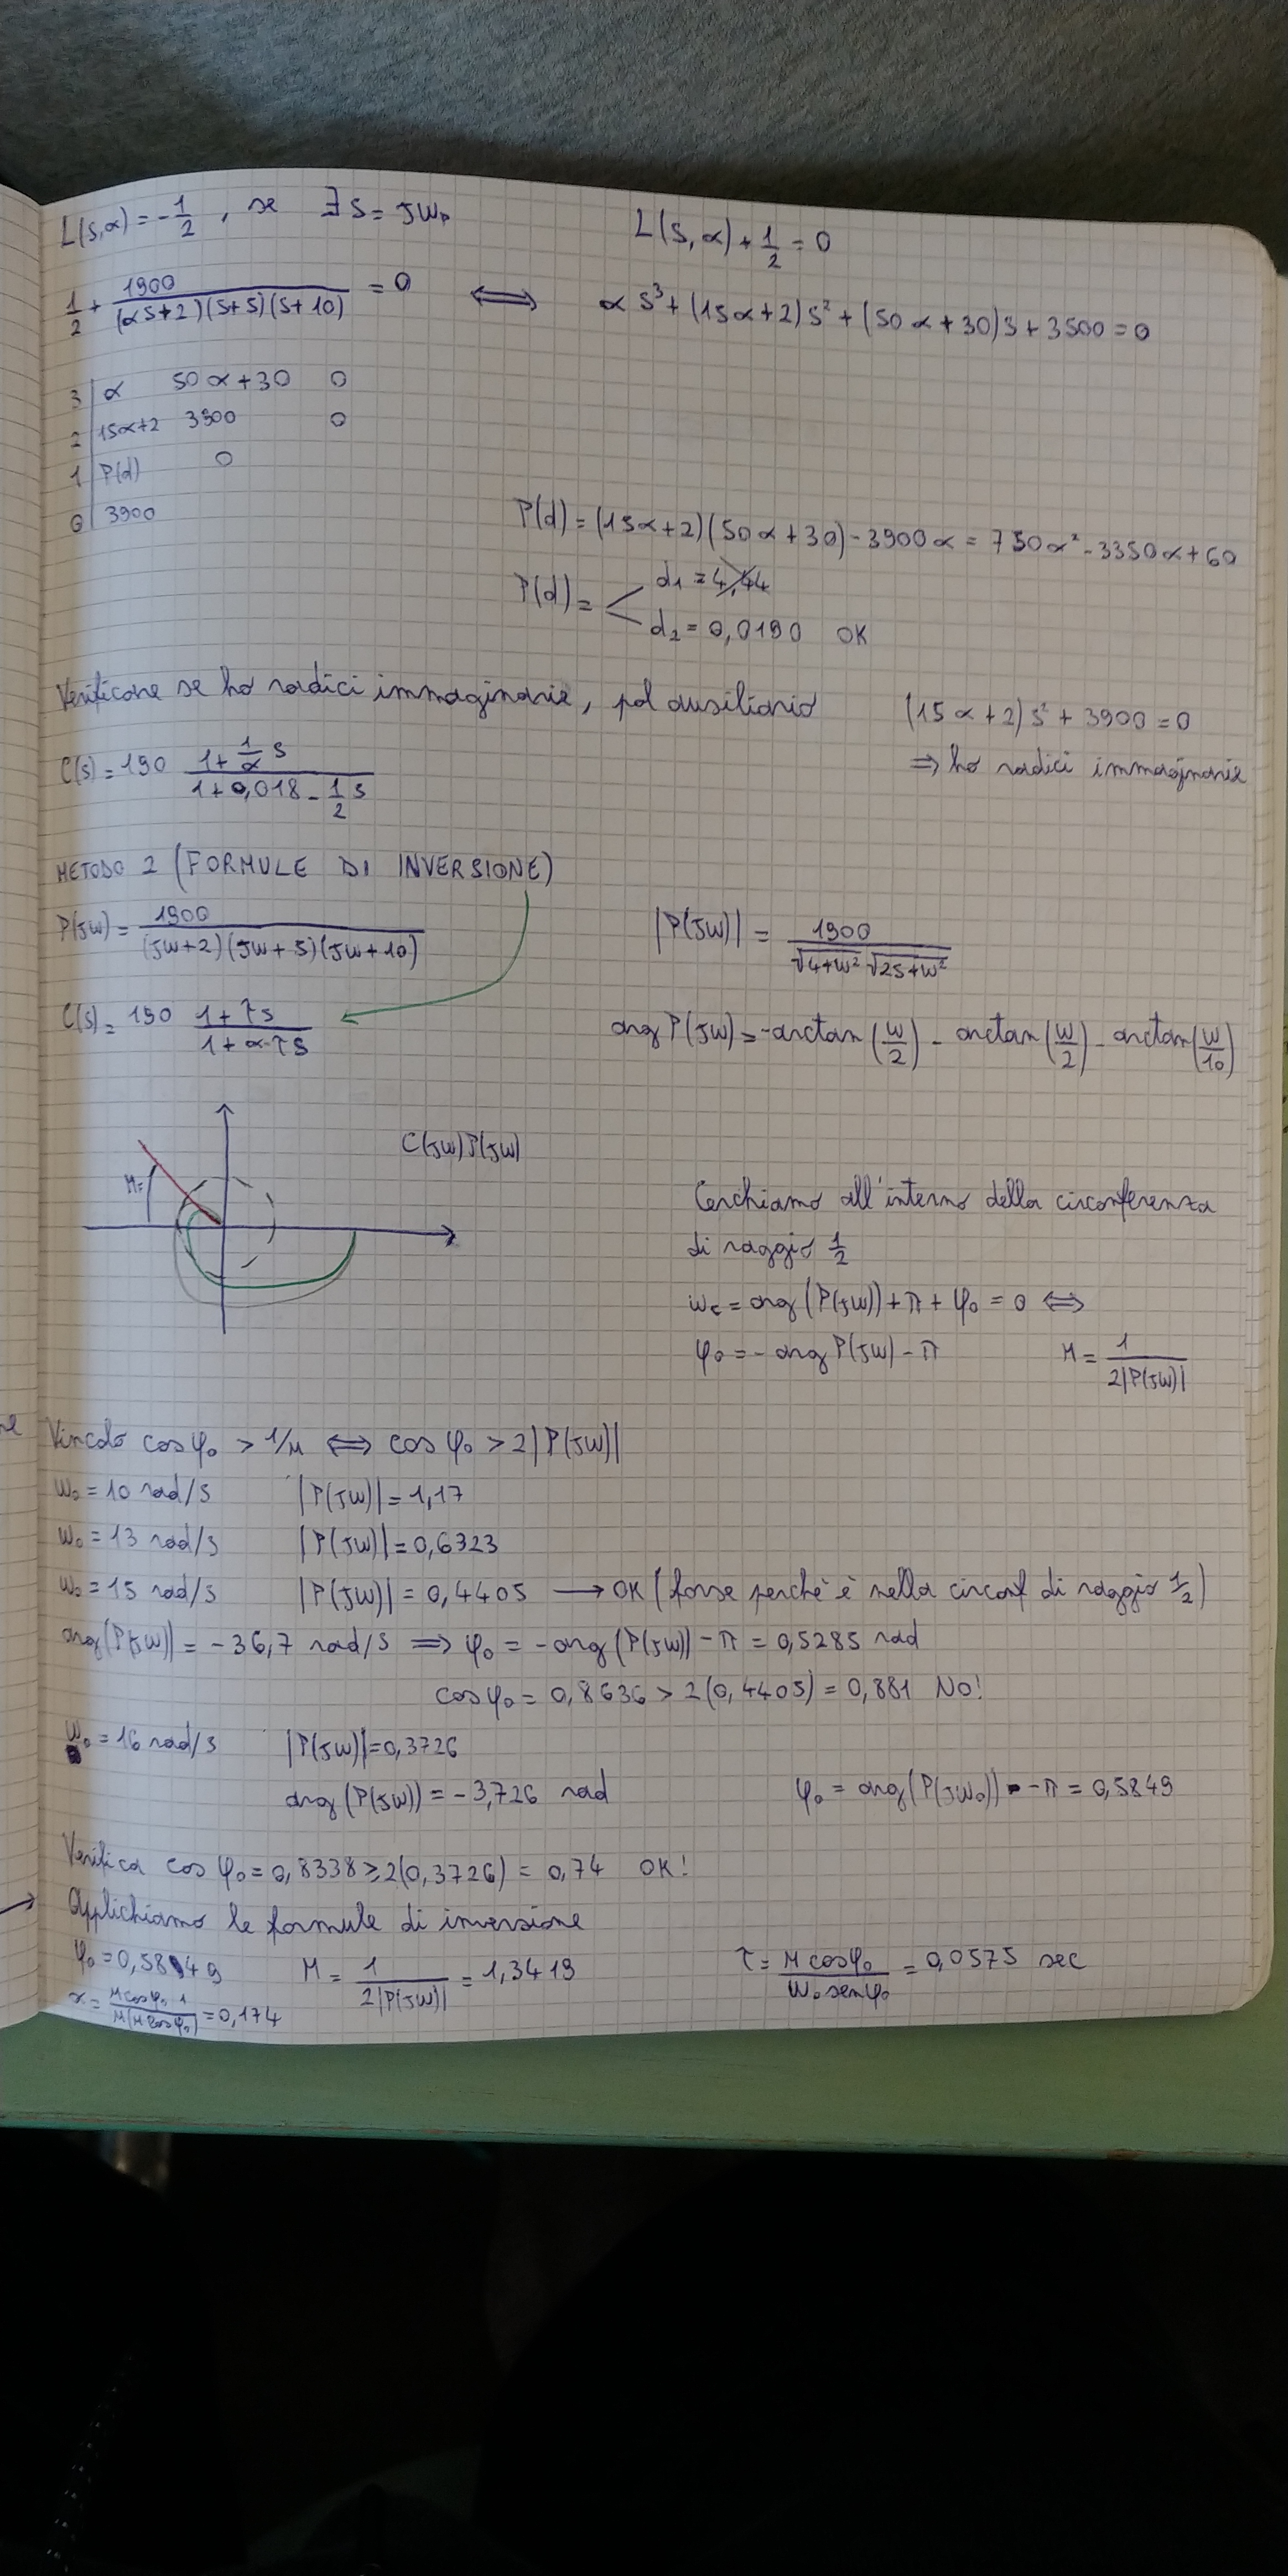 L(s,α) = -1/2 , se ∃ s = jωp    L(s,α) + 1/2 = 0
1/2 + 1900/((αs+2)(s+5)(s+10)) = 0 ⟺ αs³ + (15α+2)s² + (50α+30)s + 3900 = 0
3 | α 50α+30 0
2 | 15α+2 3900 0
1 | P(d) 0
0 | 3900
P(d) = (15α+2)(50α+30) - 3900α = 750α² - 3350α + 60
P(d) = < d1 = 4,44
d2 = 0,0180 OK
Verificare se ho radici immaginarie, pol ausiliario (15α+2)s² + 3900 = 0
⇒ ho radici immaginarie
C(s) = 190 (1 + 1/α s)/(1 + 0,018 - 1/2 s)
METODO 2 (FORMULE DI INVERSIONE)
P(jω) = 1900/((jω+2)(jω+5)(jω+10)) |P(jω)| = 1900/(√4+ω² √25+ω²)
C(s) = 190 (1 + τs)/(1 + α·τs) arg P(jω) = -arctan(ω/2) - arctan(ω/2) - arctan(ω/10)
C(jω)P(jω)
M=
Cerchiamo all'interno della circonferenza
di raggio 1/2
ωc = arg(P(jω)) + π + φ0 = 0 ⟺
φ0 = - arg P(jω) - π M = 1/(2|P(jω)|)
Vincolo cosφ0 > 1/M ⟺ cosφ0 > 2|P(jω)|
ω0 = 10 rad/s |P(jω)| = 1,17
ω0 = 13 rad/s |P(jω)| = 0,6323
ω0 = 15 rad/s |P(jω)| = 0,4405 → OK (forse perchè è nella circonf di raggio 1/2)
arg(P(jω)) = -36,7 rad/s ⇒ φ0 = -arg(P(jω)) - π = 0,5285 rad
cosφ0 = 0,8636 > 2(0,4405) = 0,881 No!
ω0 = 16 rad/s |P(jω)| = 0,3726
arg(P(jω)) = -3,726 rad φ0 = arg(P(jω0)) - π = 0,5849
Verifica cosφ0 = 0,8338 ≥ 2(0,3726) = 0,74 OK!
Applichiamo le formule di inversione
φ0 = 0,5849 M = 1/(2|P(jω)|) = 1,3419 τ = M cosφ0/(ω0 senφ0) = 0,0575 sec
α = (M cosφ0 - 1)/(M(M cosφ0)) = 0,174